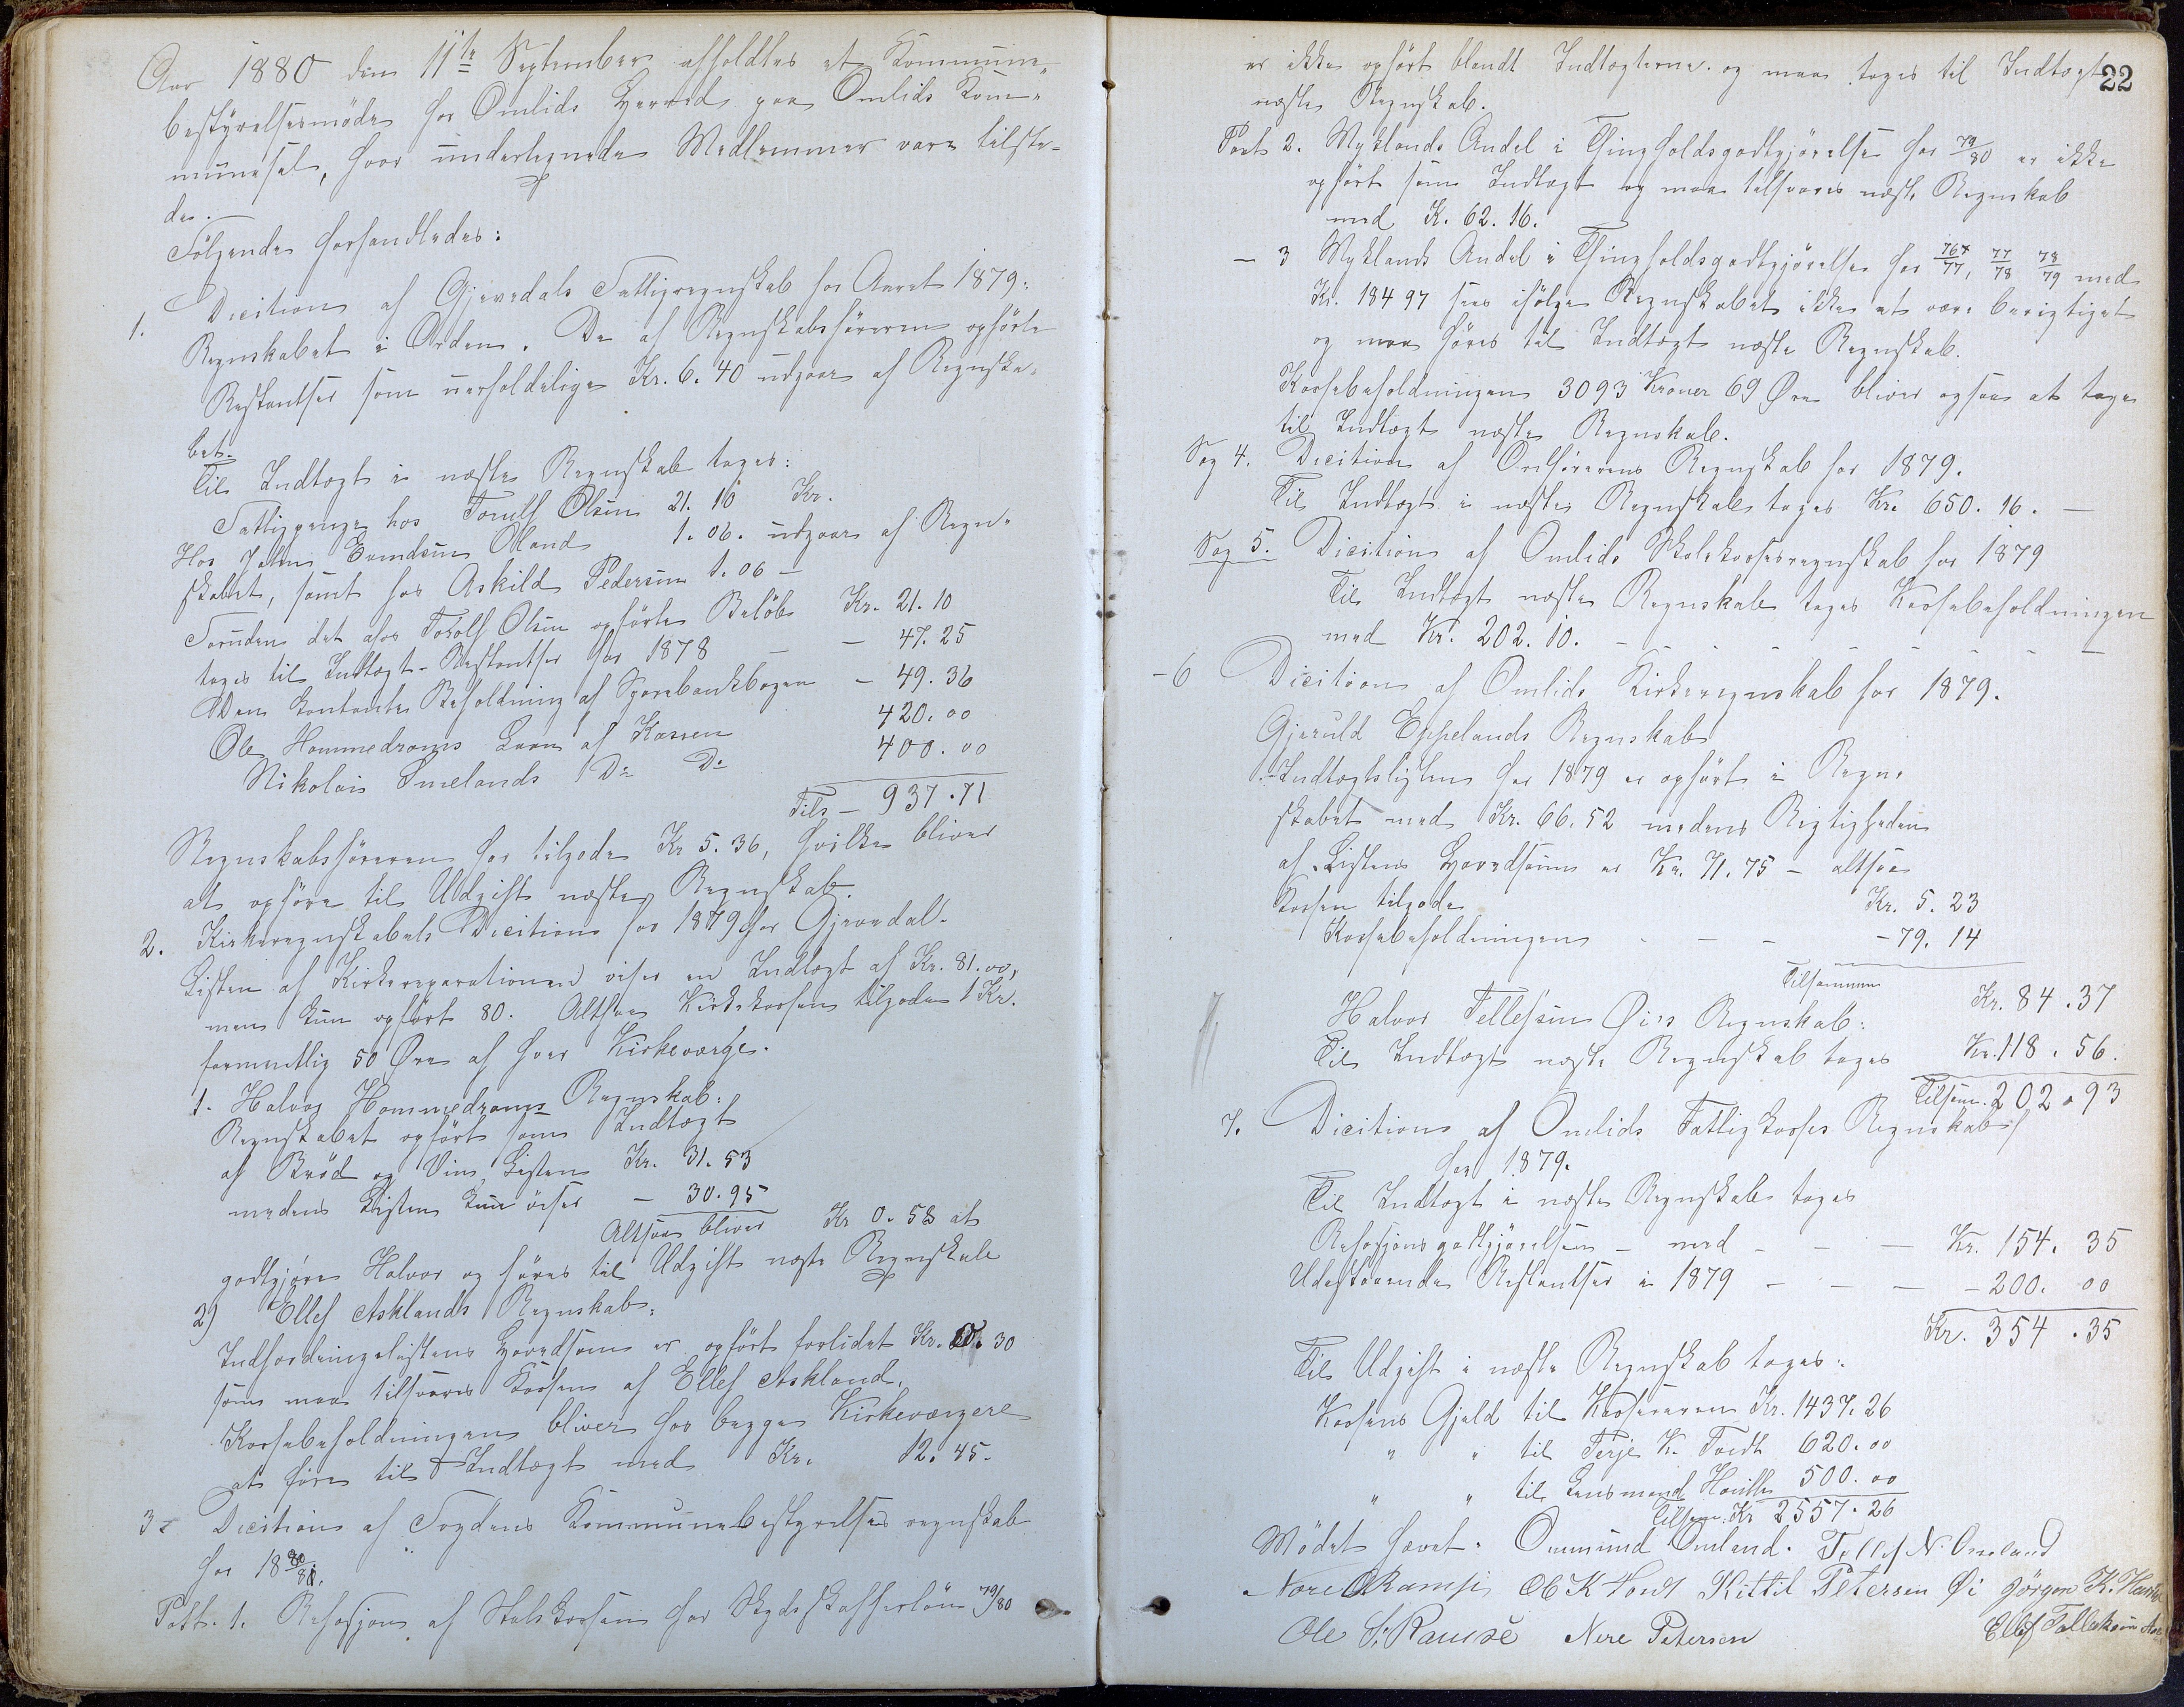 Aar 1880 den 11te September afholdtes et Kommune-
bestÿrelsesmöde for Omlids Herred paa Omlids Kom-
munesal, hvor undertegnede Medlemmer vare tilste-
de.
Følgende forhandledes:
1. Dicition af Gjevedals Fattigregnskab for Aaret 1879.
Regnskabet i Orden. De af Regnskabsføreren opførte
Restantser som uerholdelige Kr. 6.40 udgaar af Regnska-
bet.
Til Indtægt i næste Regnskab tages:
Fattigpenge hos Torulf Olsen 21.10 Kr.
Hos Jalm Evendsen Oland 1.06. udgaar af Regn-
skabet, samt hos Askild Pedersen 1.06 -
Foruden det hos Torolf Olsen opførte Beløb Kr. 21.10
tages til Indtægt Restantser for 1878 - - 47.25
Den kontante Beholdning af Sparebankbogen - 49.36
Ole Hommedrams Laan af Kassen 420.00
Nikolai Smelands Do Do 400.00
Tils - 937.71
Regnskabsføreren har tilgode Kr 5.36, hvilke bliver
at opføre til Udgift næste Regnskab.
2. Kirkeregnskabets Dicition for 1879 for Gjevedal.
Listen af Kirkereparationen viser en Indtægt af Kr. 81.00,
men kun opført 80. Altsaa Kirkekassen tilgode 1 Kr.
formentlig 50 Øre af hver Kirkeværge.
1. Halvor Hommedrams Regnskab:
Regnskabet opført som Indtægt
af Brød og Vin, Listen Kr. 31.53
medens Listen kun viser - 30.95
Altsaa bliver Kr 0.58 at
godtgjøre Halvor og føres til Udgift næste Regnskab
2) Ellef Asklands Regnskab:
Indfordringslistens Hovedsum er opført forlidet Kr. 0.30
som maa tilsvares Kassen af Ellef Askland.
Kassebeholdningen bliver for begge Kirkeværgere
at føre til Indtægt med Kr. 12.45.
3. Dicition af Fogdens Kommunebestyrelses regnskab
for 18 80/81.
Post. 1. Refusjon af Skolekassen for Skydsskafferløn 79/80
22
er ikke opført blandt Indtægterne. og maa tages til Indtægt
næste Regnskab.
Post 2. Myklands Andel i Thingholdsgodtgjørelse for 79/80 er ikke
opført som Indtægt og maa tilsvares næste Regnskab
med K. 62.16.
- 3 Myklands Andel i Thingholdsgodtgjørelse for 76/77, 77/78 78/79 med
Kr. 184 97 sees ifølge Regnskabet ikke at være berigtiget
og maa føres til Indtægt næste Regnskab.
Kassebeholdningen 3093 Kroner 69 Øre bliver ogsaa at tage
til Indtægt næste Regnskab.
Sag 4. Dicition af Ordførerens Regnskab for 1879.
Til Indtægt i næste Regnskab tages Kr. 650.16. -
Sag 5. Dicition af Omlids Skolekasseregnskab for 1879
Til Indtægt næste Regnskab tages Kassebeholdningen
med Kr. 202.10. -
- 6 Dicition af Omlids Kirkeregnskab for 1879.
Gjeruld Eppelands Regnskab
Indtægtslisten for 1879 er opført i Regn-
skabet med Kr. 66.52 medens Rigtigheden
af Listens Hovedsum er Kr. 71.75 - altsaa
Kassen tilgode Kr. 5.23
Kassebeholdningen - - - 79.14
Tilsammen Kr. 84.37
Halvor Tellefsen Øi's Regnskab:
Til Indtægt næste Regnskab tages Kr. 118.56.
Tilsam. 202.93
7. Dicition af Omlids Fattigkasses Regnskab
for 1879.
Til Indtægt i næste Regnskab tages
Refusjonsgodtgjørelsen - med - - - Kr. 154.35
Udestaaende Restantser i 1879 - - - - 200.00
Kr. 354.35
Til Udgift i næste Regnskab tages:
Kassens Gjæld til Kassereren Kr. 1437.26
" " til Terje K. Tvedt 620.00
" " til Lensmand 500.00
Tilsam. Kr 2557.26
Mödet hævet. Ommund Omland. Tellef N. Osseland
Nære Kittil Petersen Øi Jörgen K.
Ole S. Ramse Nere Petersen Ellef